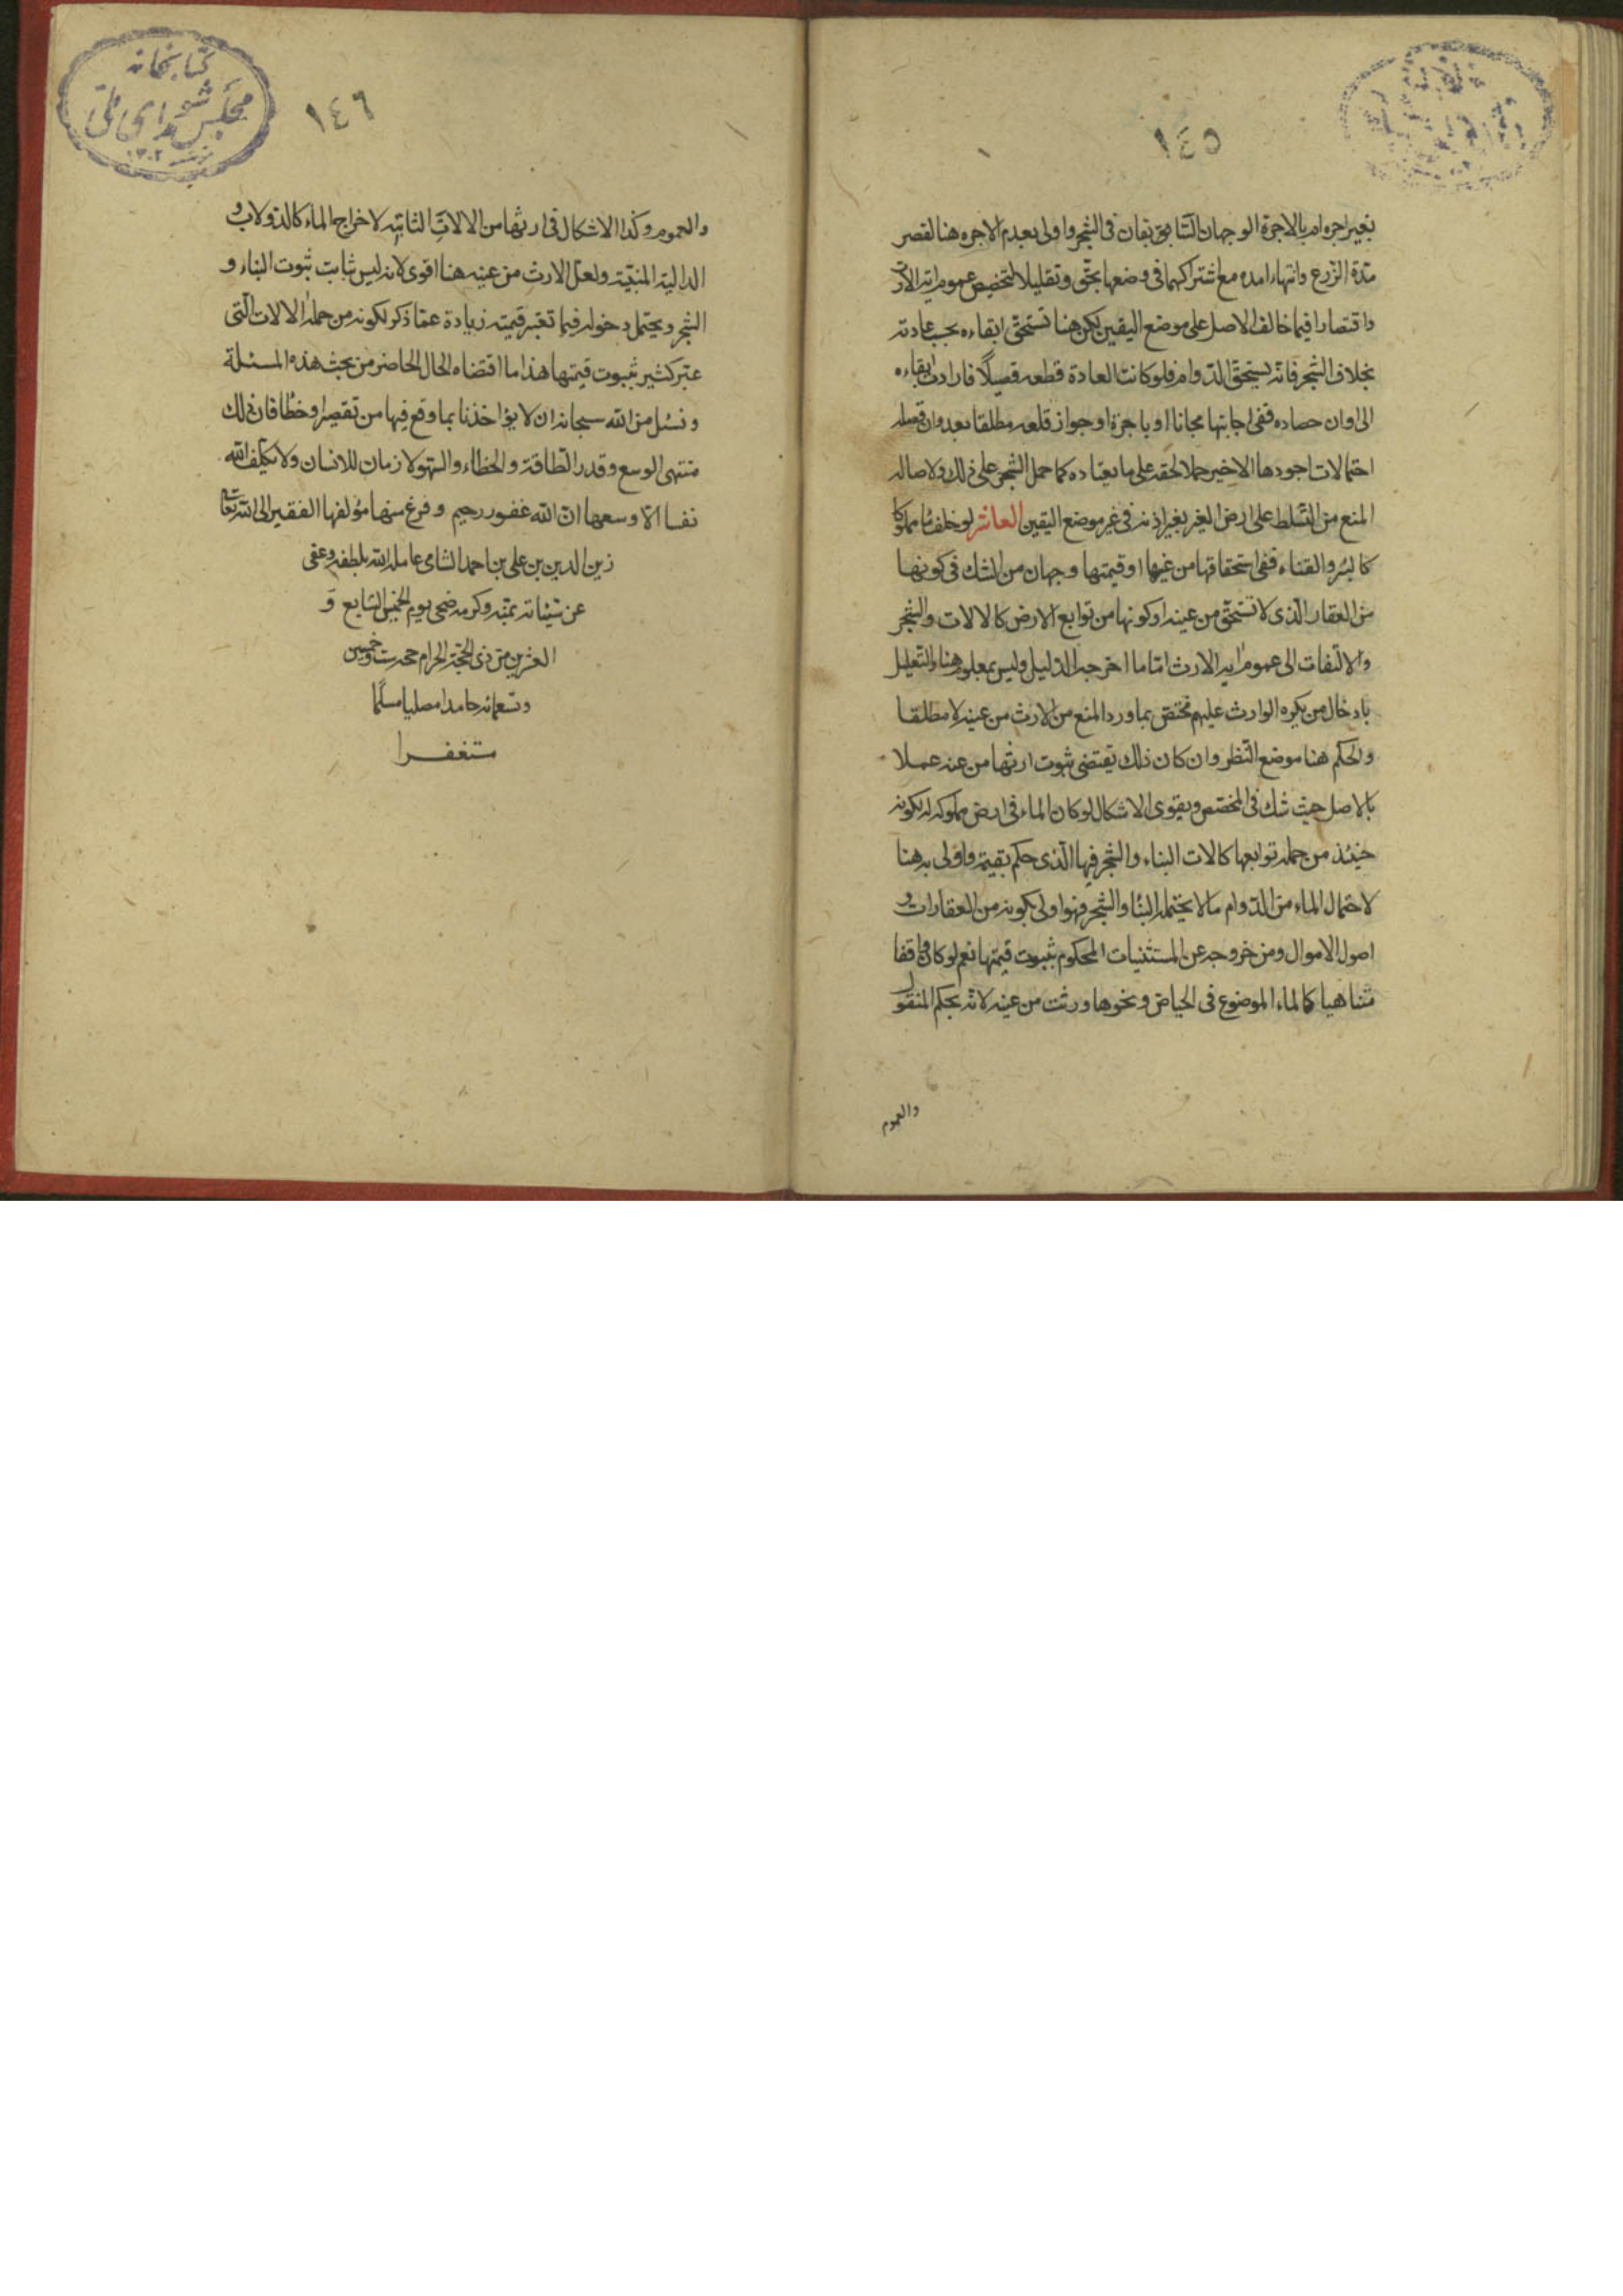 ١٤٥
بغير اجره ام بالاجرة الوجهان السابقان في الشجر واولى بعدم الاجره هنا لقصر
مدة الزرع وانتهاء امده مع اشتراكهما في وضعها بحق وتقليلا لتخصيص عموم ايه الارث
واقتصارا فيما خالف الاصل على موضع اليقين لكن هنا تستحق ابقاءه بحسب عادته
بخلاف الشجر فانه يستحق الدوام فلو كانت العادة قطعه قصيلا فارادت ابقاءه
الى اوان حصاده ففي اجابتها مجانا او باجرة او جواز قلعه مطلقا بعد اوان قصله
احتمالات اجودها الاخير حملا لحقه على ما يعتاده كما حمل الشجر على ذلك ولاصاله
المنع من التسلط على ارض الغير بغير اذنه في غير موضع اليقين العاشر لو خلف ماء مملوكا
كالبئر والقناه ففي استحقاقها من عينها او قيمتها وجهان من الشك في كونها
من العقار الذي لا تستحق من عينه او كونها من توابع الارض كالالات والشجر
والالتفات الى عموم ايه الارث الا ما اخرجه الدليل وليس بمعلوم هنا والتعليل
بادخال من يكره الوارث عليهم مختص بما ورد المنع من الارث من عينه لا مطلقا
والحكم هنا موضع النظر وان كان ذلك يقتضي ثبوت ارثها من عنه عملا
بالاصل حيث شك في المخصص ويقوى الاشكال لو كان الماء في ارض مملوكه له لكونه
حينئذ من جمله توابعها كالات البناء والشجر فيها الذي حكم بقيمته واولى به هنا
لاحتمال الماء من الدوام ما لا يحتمله البناء والشجر فهو اولى بكونه من العقارات و
اصول الاموال ومن خروجه عن المستثنيات المحكوم بثبوت قيمتها نعم لو كان واقفا
متناهيا كالماء الموضوع في الحياض ونحوها ورثت من عينه لانه بحكم المنقول
والعموم
كتابخانه
مجلس شوراي ملي
١٣٠٢
١٤٦
والعموم وكذا الاشكال في ارثها من الالات الثابته لاخراج الماء كالدولاب و
الداليه المنبتة ولعل الارث من عينه هنا اقوى لانه ليس ثابت ثبوت البناء و
الشجر ويحتمل دخوله فيما تعتبر قيمته زيادة عما ذكر لكونه من جملة الالات التي
عبر كثير بثبوت قيمتها هذا ما اقتضاه الحال الحاضر من بحث هذه المسئلة
ونسئل من الله سبحانه ان لا يؤاخذنا بما وقع فيها من تقصير او خطأ فان ذلك
منتهى الوسع وقدر الطاقة والخطاء والسهو لازمان للانسان ولا يكلف الله
نفسا الا وسعها ان الله غفور رحيم وفرغ منها مؤلفها الفقير الى الله تعالى
زين الدين بن علي بن احمد الشامي عامله الله بلطفه وعفى
عن سيئاته بمنه وكرمه ضحى يوم الخميس السابع و
العشرين من ذي الحجة الحرام حجه ست وخمسين
وتسعمائه حامدا مصليا مسلما
مستغفرا